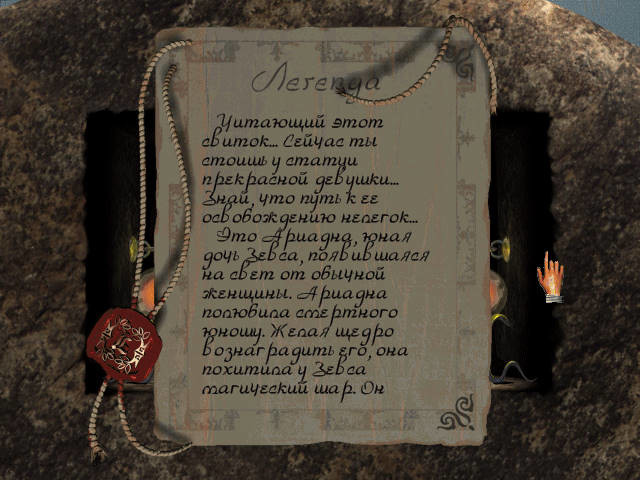 Легенда
Читающий этот
свиток... Сейчас ты
стоишь у статуи
прекрасной девушки...
Знай, что путь к ее
освобождению нелегок...
Это Ариадна, юная
дочь Зевса, появившаяся
на свет от обычной
женщины. Ариадна
полюбила смертного
юношу. Желая щедро
вознаградить его, она
похитила у Зевса
магический шар. Он